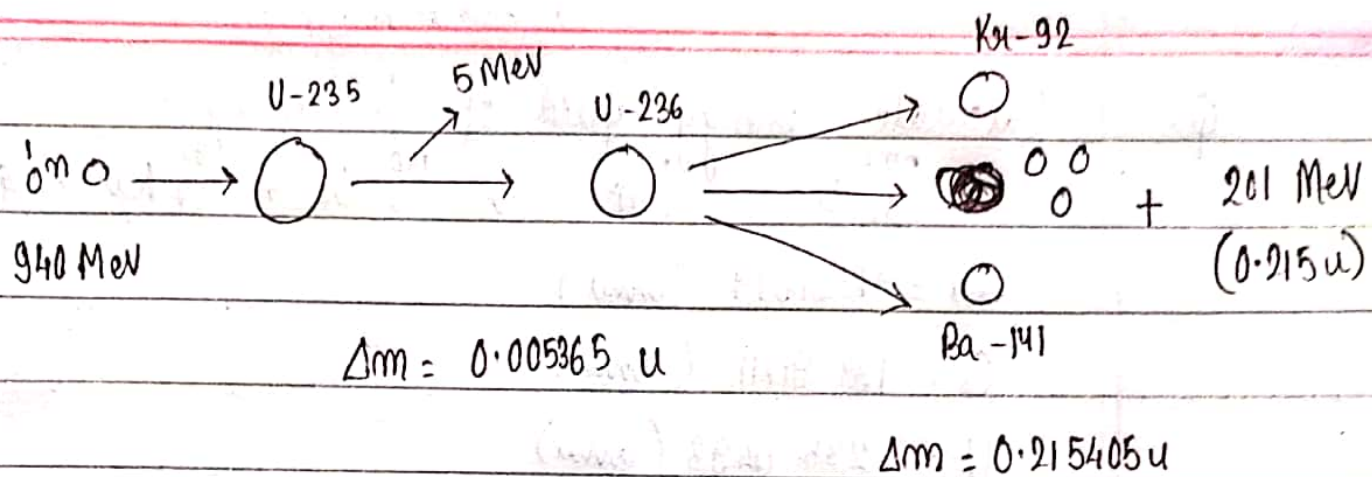 Kr-92
U-235
5 MeV
U-236
¹₀n
+ 201 MeV
940 MeV
(0.215u)
Ba-141
Δm = 0.005365 u
Δm = 0.215405u